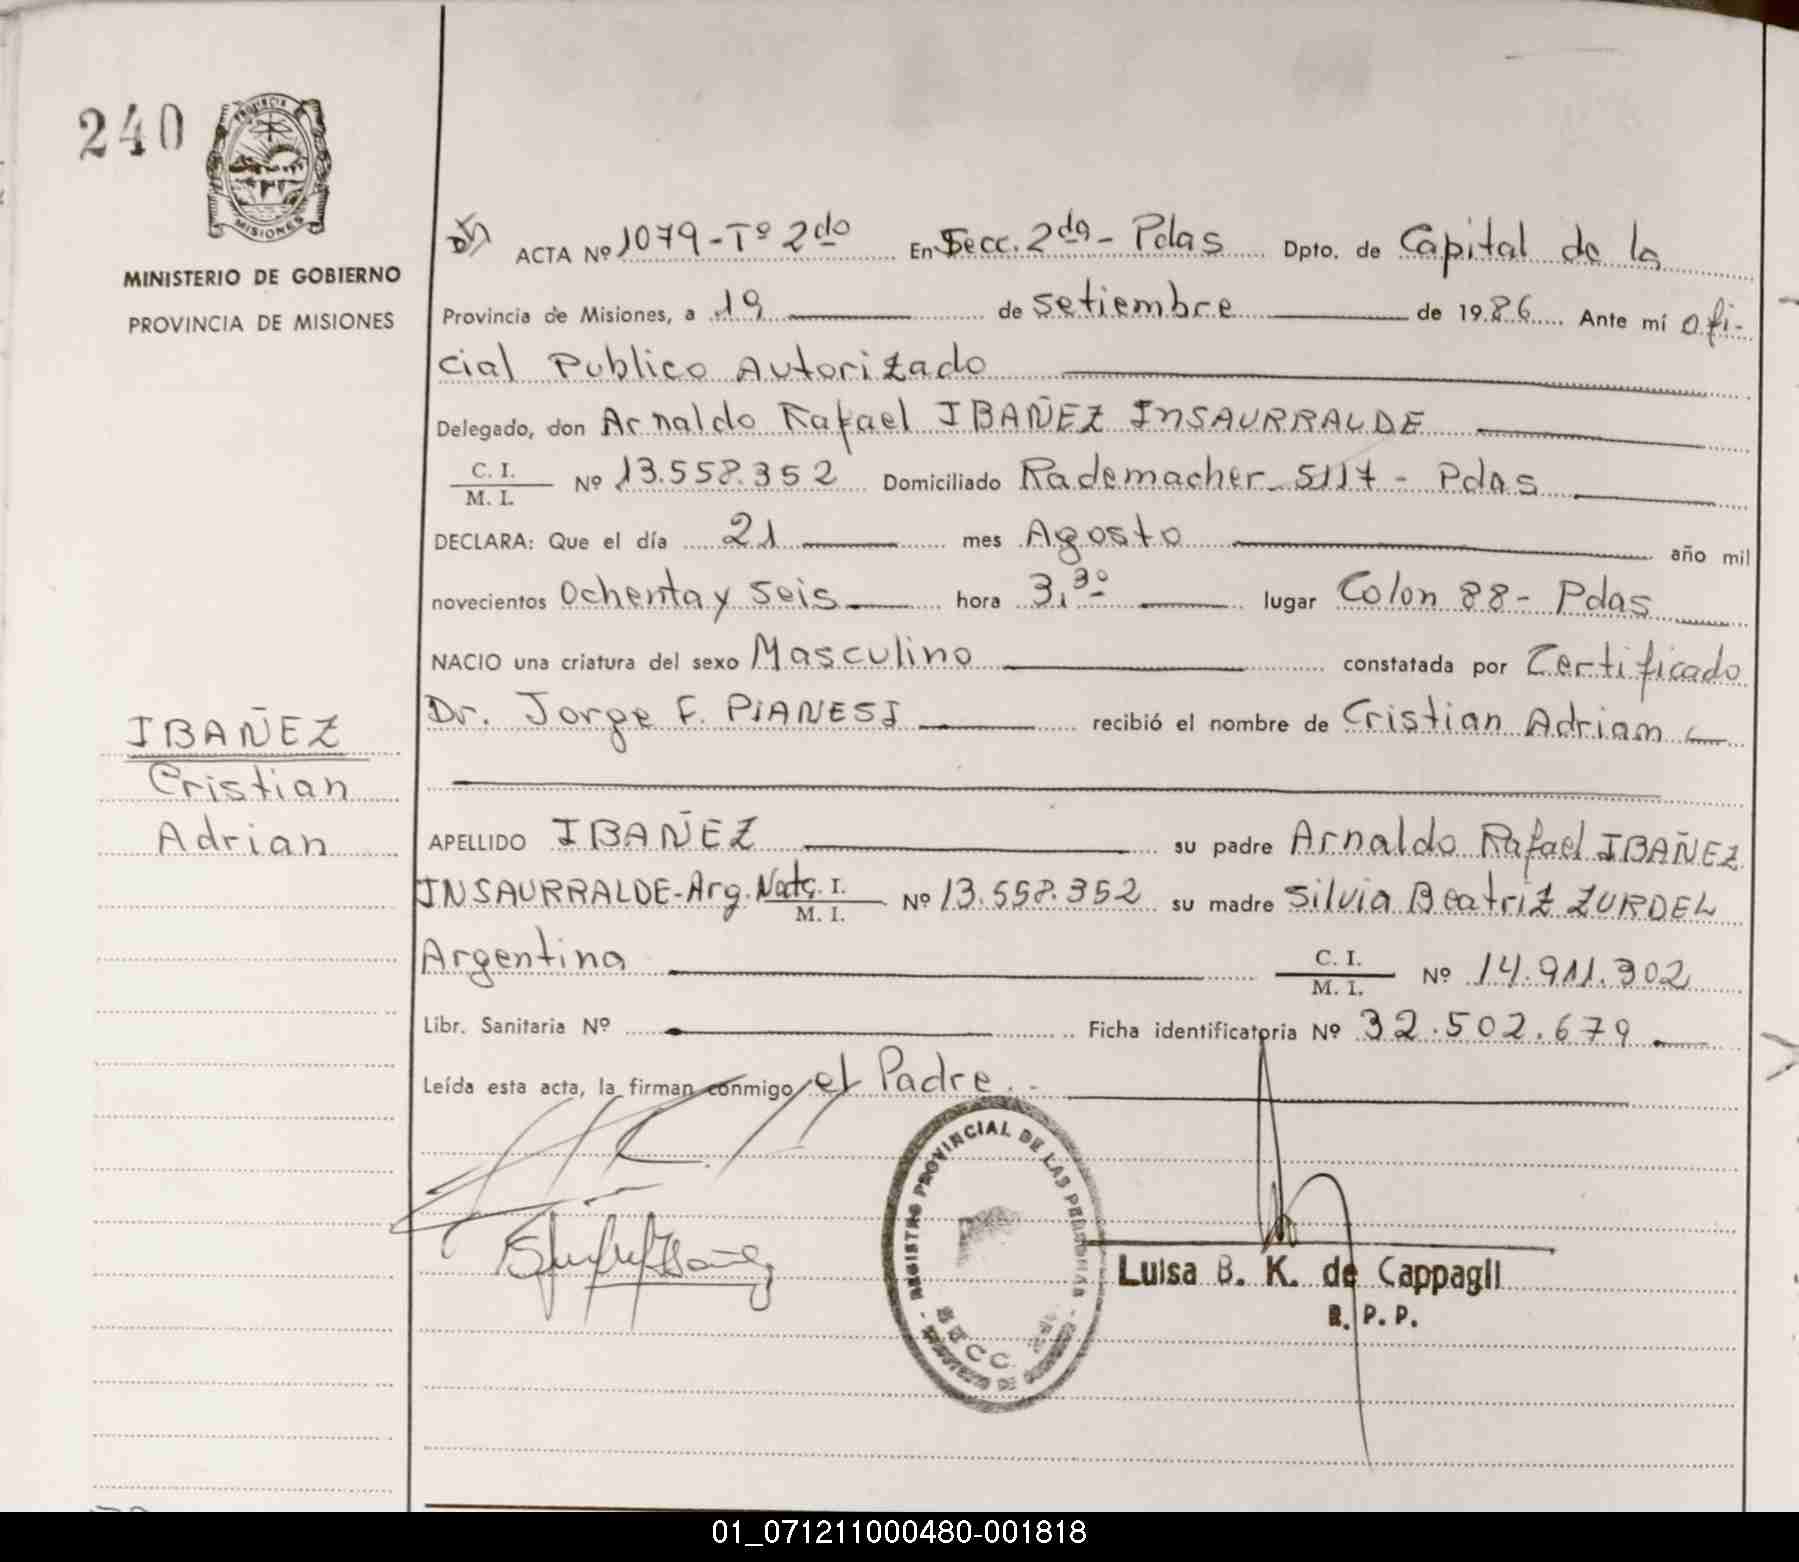 240
PROVINCIA
MISIONES
MINISTERIO DE GOBIERNO
PROVINCIA DE MISIONES
ACTA Nº 1079-Tº 2do En Secc. 2da - Pdas Dpto. de Capital de la
Provincia de Misiones, a 19 de setiembre de 1986 Ante mí ofi-
cial Publico Autorizado
Delegado, don Arnaldo Rafael IBAÑEZ INSAURRALDE
C. I.
M. I. Nº 13.558.352 Domiciliado Rademacher 5117 - Pdas
DECLARA: Que el día 21 mes Agosto año mil
novecientos Ochenta y Seis hora 3,30 lugar Colon 88 - Pdas
NACIO una criatura del sexo Masculino constatada por Certificado
Dr. Jorge F. PIANESI recibió el nombre de Cristian Adrian
IBAÑEZ
Cristian
Adrian
APELLIDO IBAÑEZ su padre Arnaldo Rafael IBAÑEZ
INSAURRALDE-Arg. C. I.
M. I. Nº 13.558.352 su madre Silvia Beatriz ZURDEL
Argentina C. I.
M. I. Nº 14.911.302
Libr. Sanitaria Nº Ficha identificatoria Nº 32.502.679
Leída esta acta, la firman conmigo el Padre..
REGISTRO PROVINCIAL DE LAS PERSONAS
SECC.
Luisa B. K. de Cappagli
R. P. P.
01_071211000480-001818